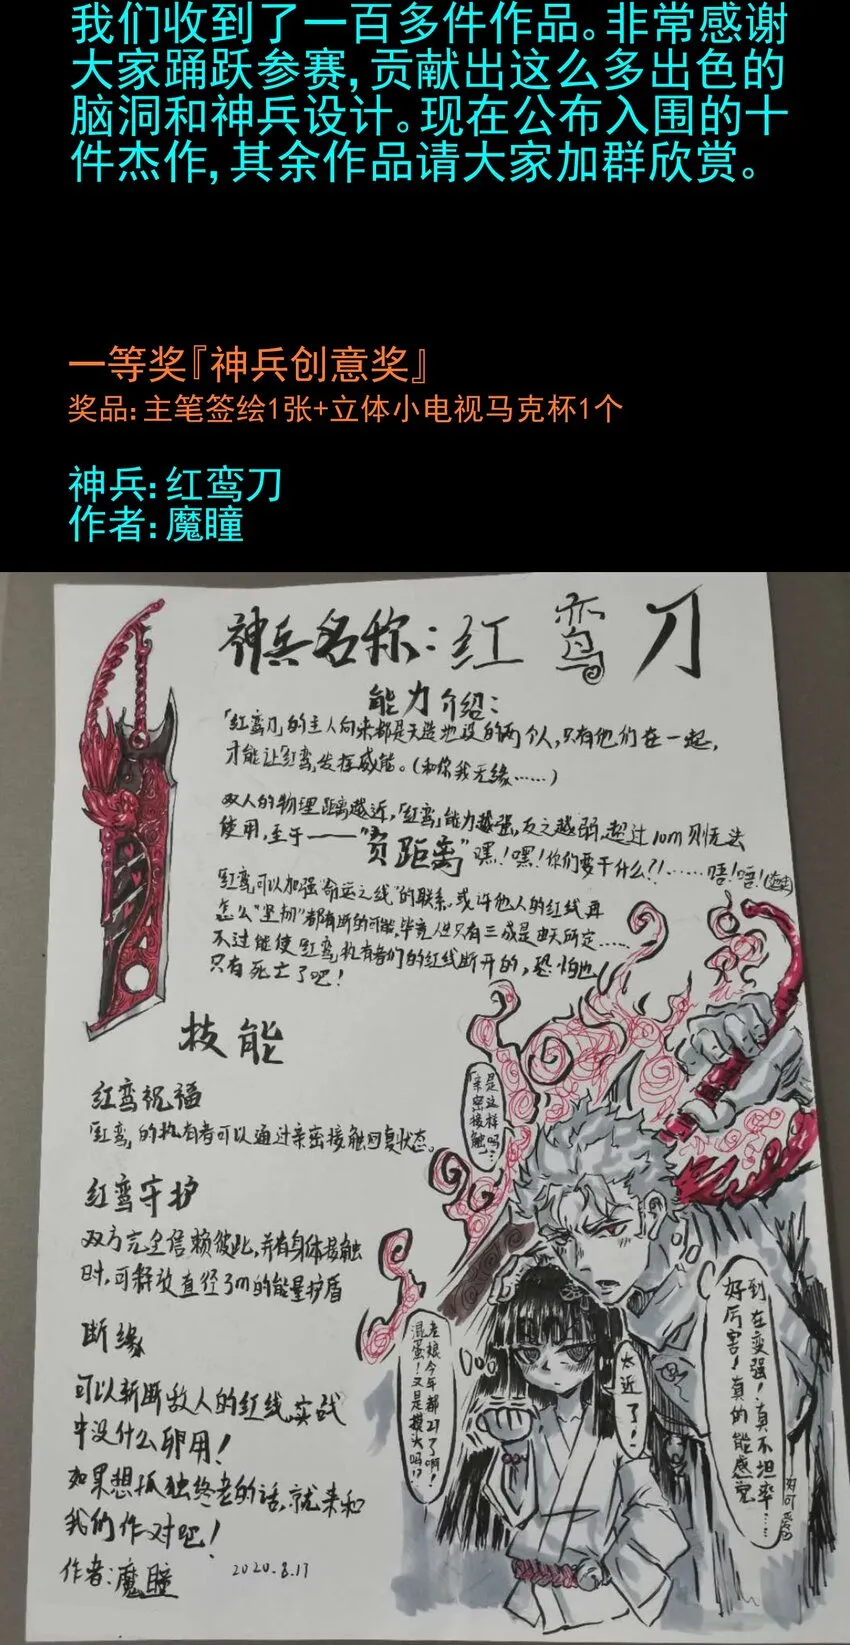 我们收到了一百多件作品。非常感谢
大家踊跃参赛,贡献出这么多出色的
脑洞和神兵设计。现在公布入围的十
件杰作,其余作品请大家加群欣赏。
一等奖『神兵创意奖』
奖品:主笔签绘1张+立体小电视马克杯1个
神兵:红鸾刀
作者:魔瞳
神兵名称:红鸾刀
能力介绍:
「红鸾刀」的主人向来都是天造地设的两个人,只有他们在一起,
才能让「红鸾」发挥威能。(和你我无缘……)
双人的物理距离越近,「红鸾」能力越强,反之越弱,超过10m则无法
使用,至于——"负距离"嘿!嘿!你们要干什么?!……唔!唔!
「红鸾」可以加强"命运之线"的联系,或许他人的红线再
怎么"坚韧"都有断的可能,毕竟人生只有三成是由天所定……
不过能使「红鸾」执有者们的红线断开的,恐怕也
只有死亡了吧!
技能
红鸾祝福
「红鸾」的执有者可以通过亲密接触回复状态。
红鸾守护
双方完全信赖彼此,并有身体接触
时,可释放直径3m的能量护盾
断缘
可以斩断敌人的红线,实战
中没什么卵用!
如果想孤独终老的话,就来和
我们作对吧!
作者:魔瞳
2020.8.17
是这样吗?
亲密接触?
老娘今年都21了啊!
混蛋!又是摸头吗!?
太近了!
到在变强!真不坦率……
好厉害!真的能感觉